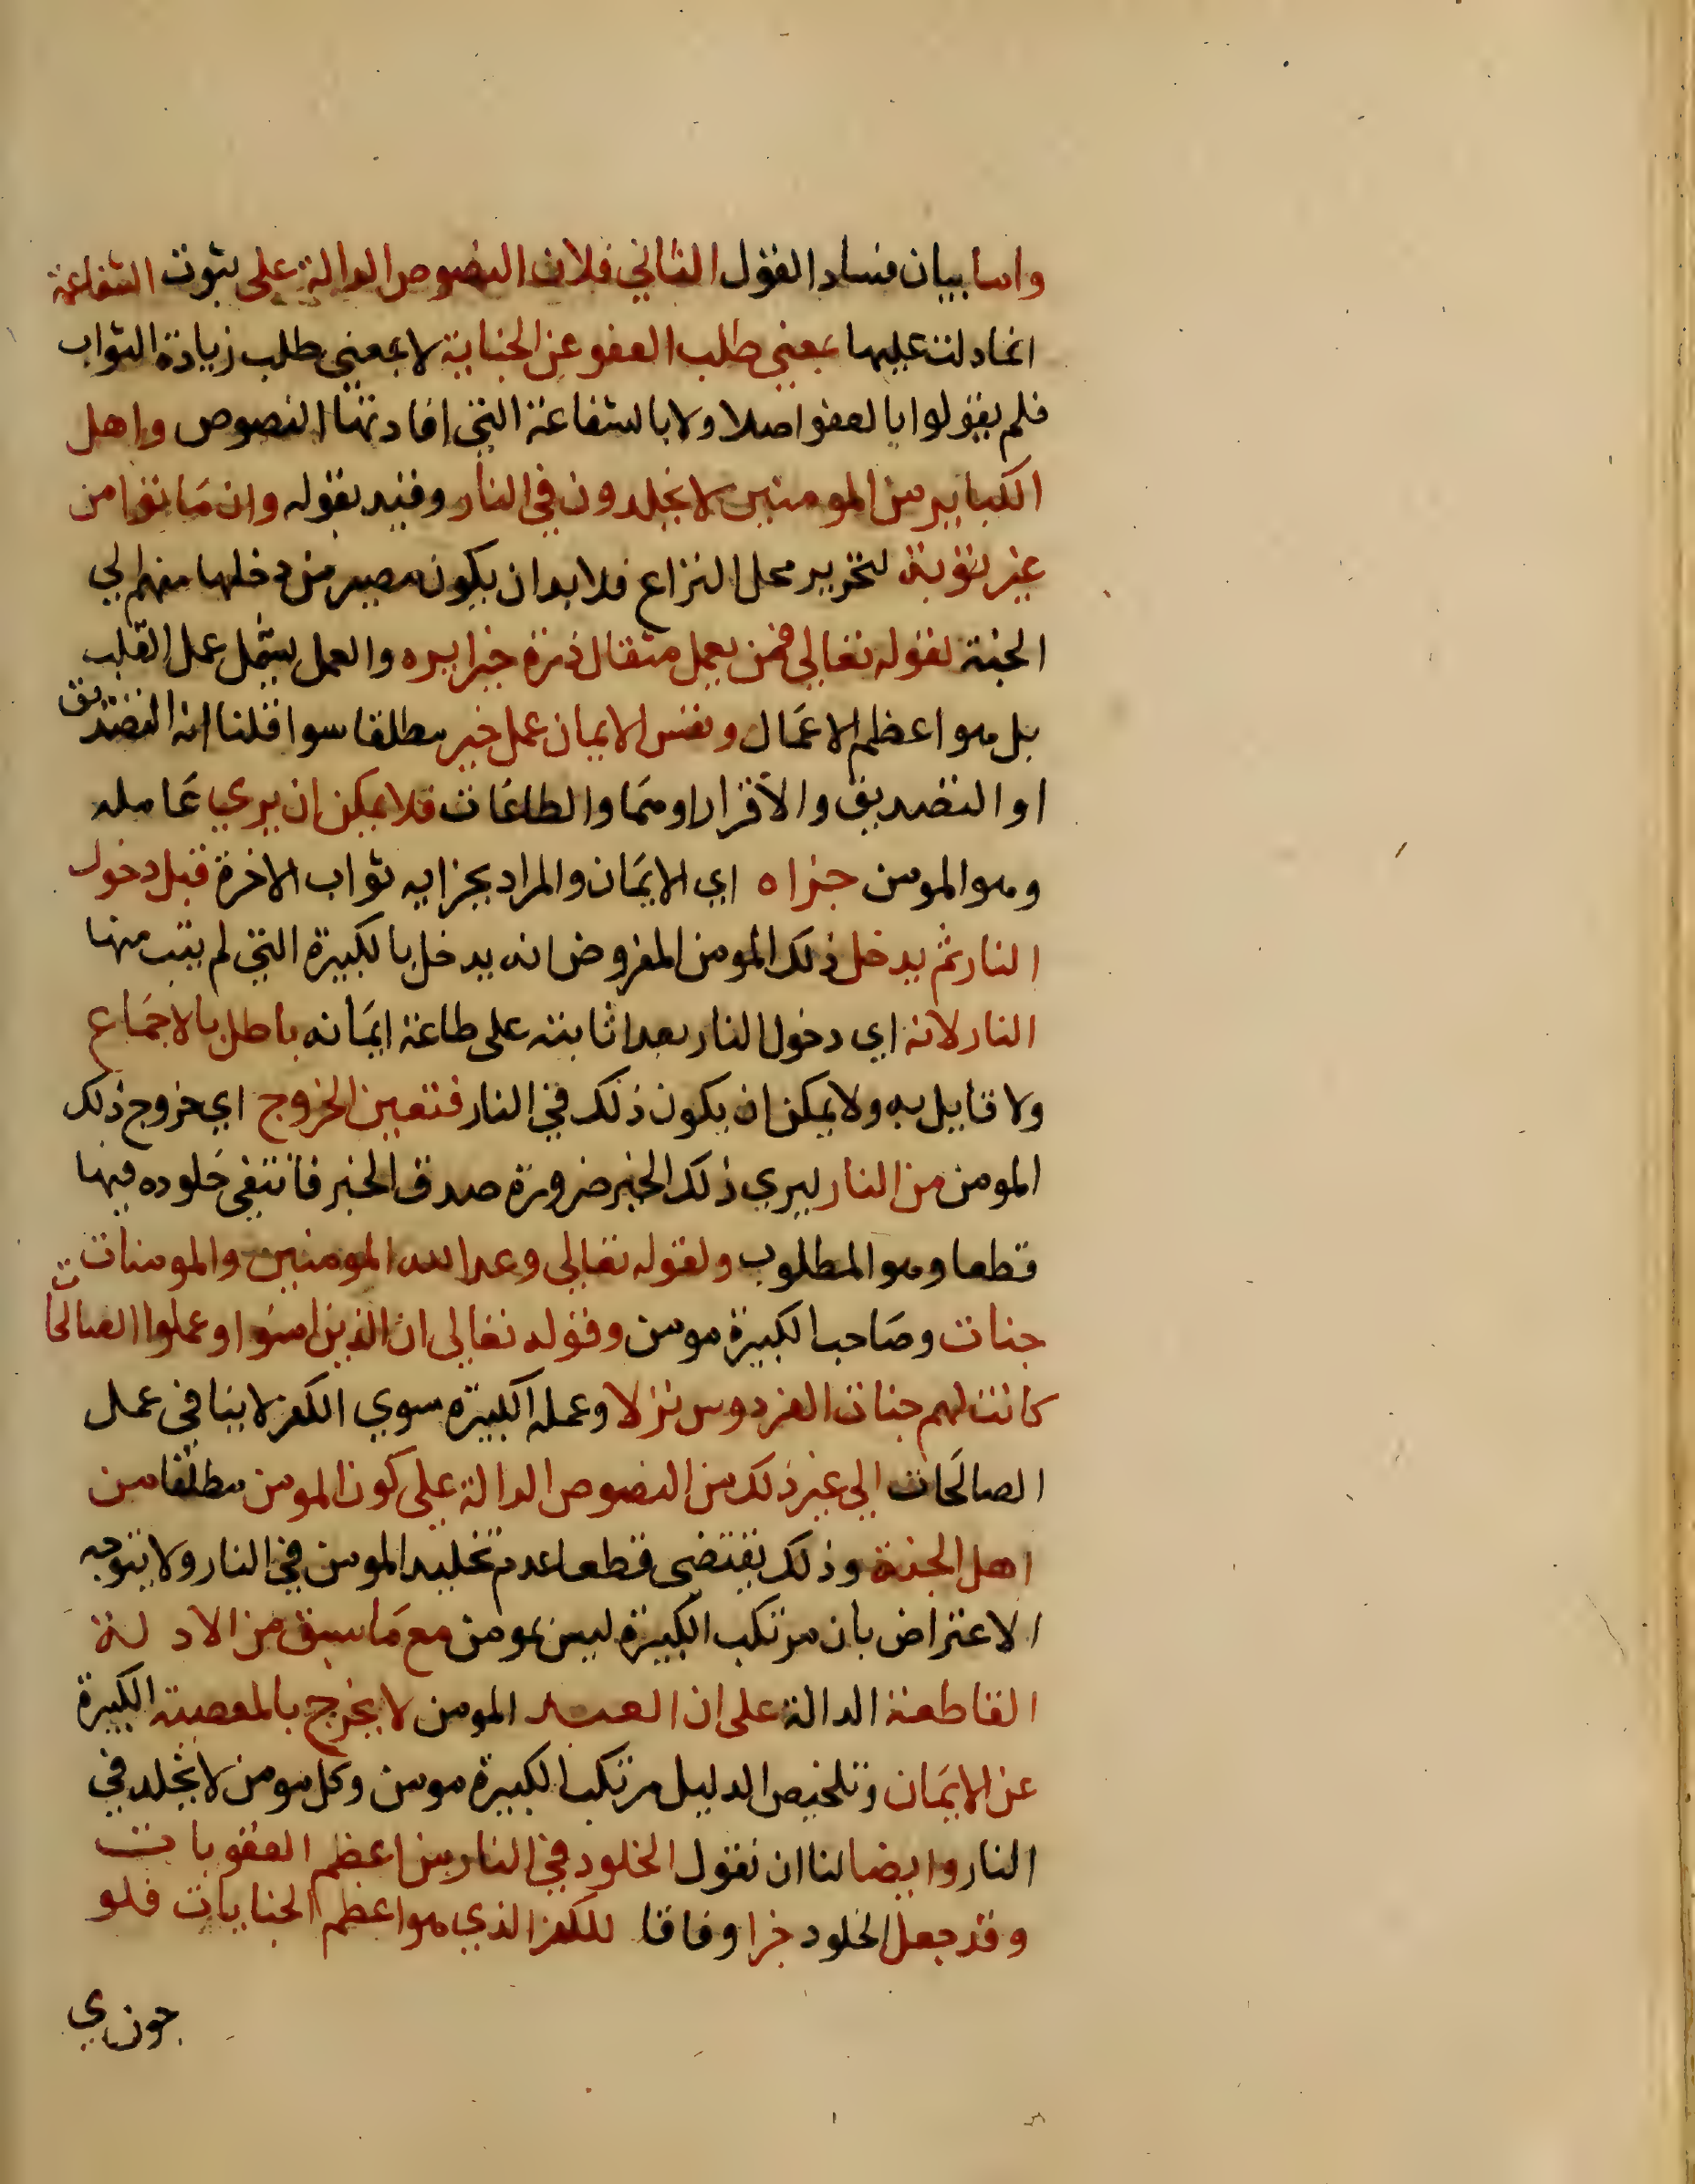 واما بيان فساد القول الثاني فلان النصوص الدالة على ثبوت الشفاعة
انما دلت عليها بمعنى طلب العفو عن الجناية لا بمعنى طلب زيادة الثواب
فلم يقولوا بالعفو اصلا ولا بالشفاعة التي افادتها النصوص واهل
الكباير من المومنين لا يخلدون في النار وقيد بقوله وان ماتوا من
غير توبة لتحرير محل النزاع فلا بد ان يكون مصير من دخلها منهم الي
الجنة لقوله تعالي فمن يعمل مثقال ذرة خيرا يره والعمل يشمل عمل القلب
بل هو اعظم الاعمال ونفس الايمان عمل خير مطلقا سوا قلنا انه التصديق
او التصديق والاقرار او هما والطاعات فلا يمكن ان يري عامله
وهو المومن جزاه اي الايمان والمراد بجزايه ثواب الاخرة قبل دخول
النار ثم يدخل ذلك المومن المفروض انه يدخل بالكبيرة التي لم يتب منها
النار لانه اي دخول النار بعد اثابته على طاعة ايمانه باطل بالاجماع
ولا قايل به ولا يمكن ان يكون ذلك في النار فتعين الخروج اي خروج ذلك
المومن من النار ليري ذلك الخير ضرورة صدق الخبر فانتفى خلوده فيها
قطعا وهو المطلوب ولقوله تعالي وعد الله المومنين والمومنات
جنات وصاحب الكبيرة مومن وقوله تعالي ان الذين امنوا وعملوا الصالحات
كانت لهم جنات الفردوس نزلا وعمله الكبيرة سوي الكفر لا ينافي عمل
الصالحات الي غير ذلك من النصوص الدالة علي كون المومن مطلقا من
اهل الجنة وذلك يقتضي قطعا عدم تخليد المومن في النار ولا يتوجه
الاعتراض بان مرتكب الكبيرة ليس بمومن مع ما سبق من الادلة
القاطعة الدالة على ان العبد المومن لا يخرج بالمعصية الكبيرة
عن الايمان وتلخيص الدليل مرتكب الكبيرة مومن وكل مومن لا يخلد في
النار وايضا لنا ان نقول الخلود في النار من اعظم العقوبات
وقد جعل الخلود جزا وفاقا للكفر الذي هو اعظم الجنايات فلو
جوزي